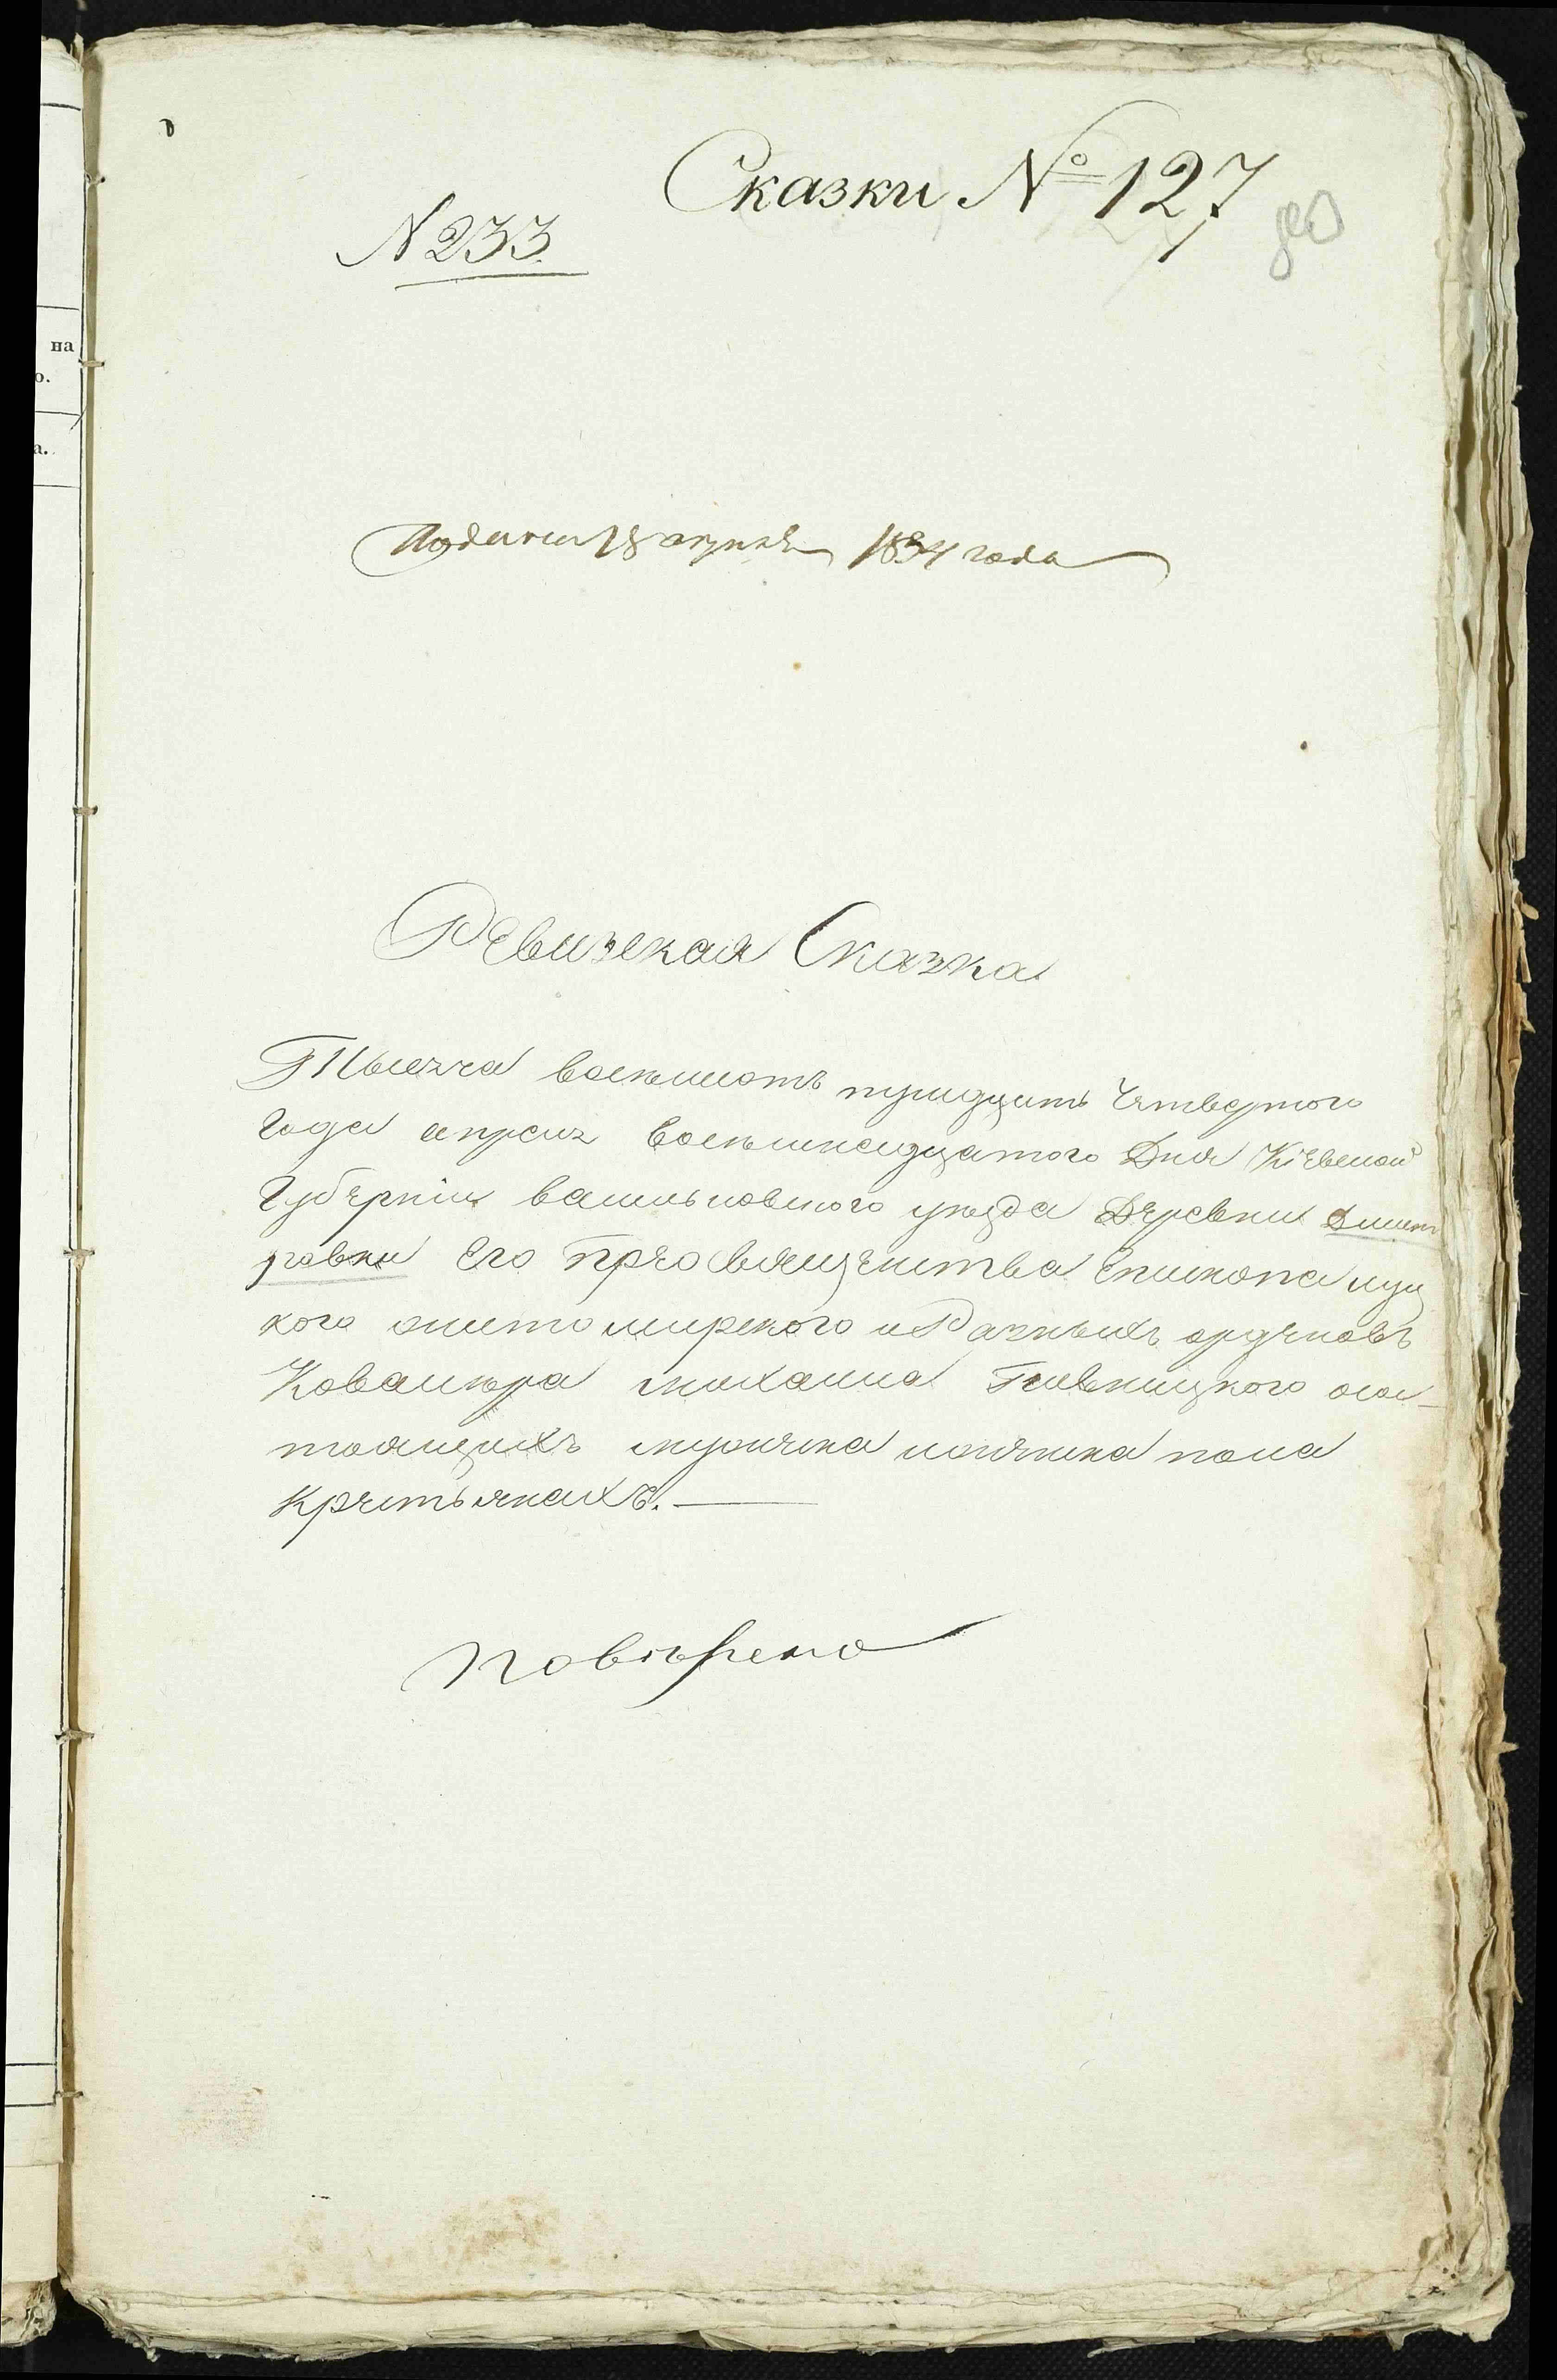 Сказки № 127
N 233
на
о.
а.
Подана 18 апреля 1834 года
Ревизская Сказка
Тысяча восемьсотъ тридцать Четвертого
Года апреля восемнадцатого Дня Кіевской
Губерніи васильковского уезда Деревни Дмит
ровки Его Преосвященства Епископа луц
кого житомирского и Разныхъ орденовъ
Кавалера михаила Пивницкого о сос-
тоящихъ мужеска и женска пола
Крестьянахъ. —
Повѣрено